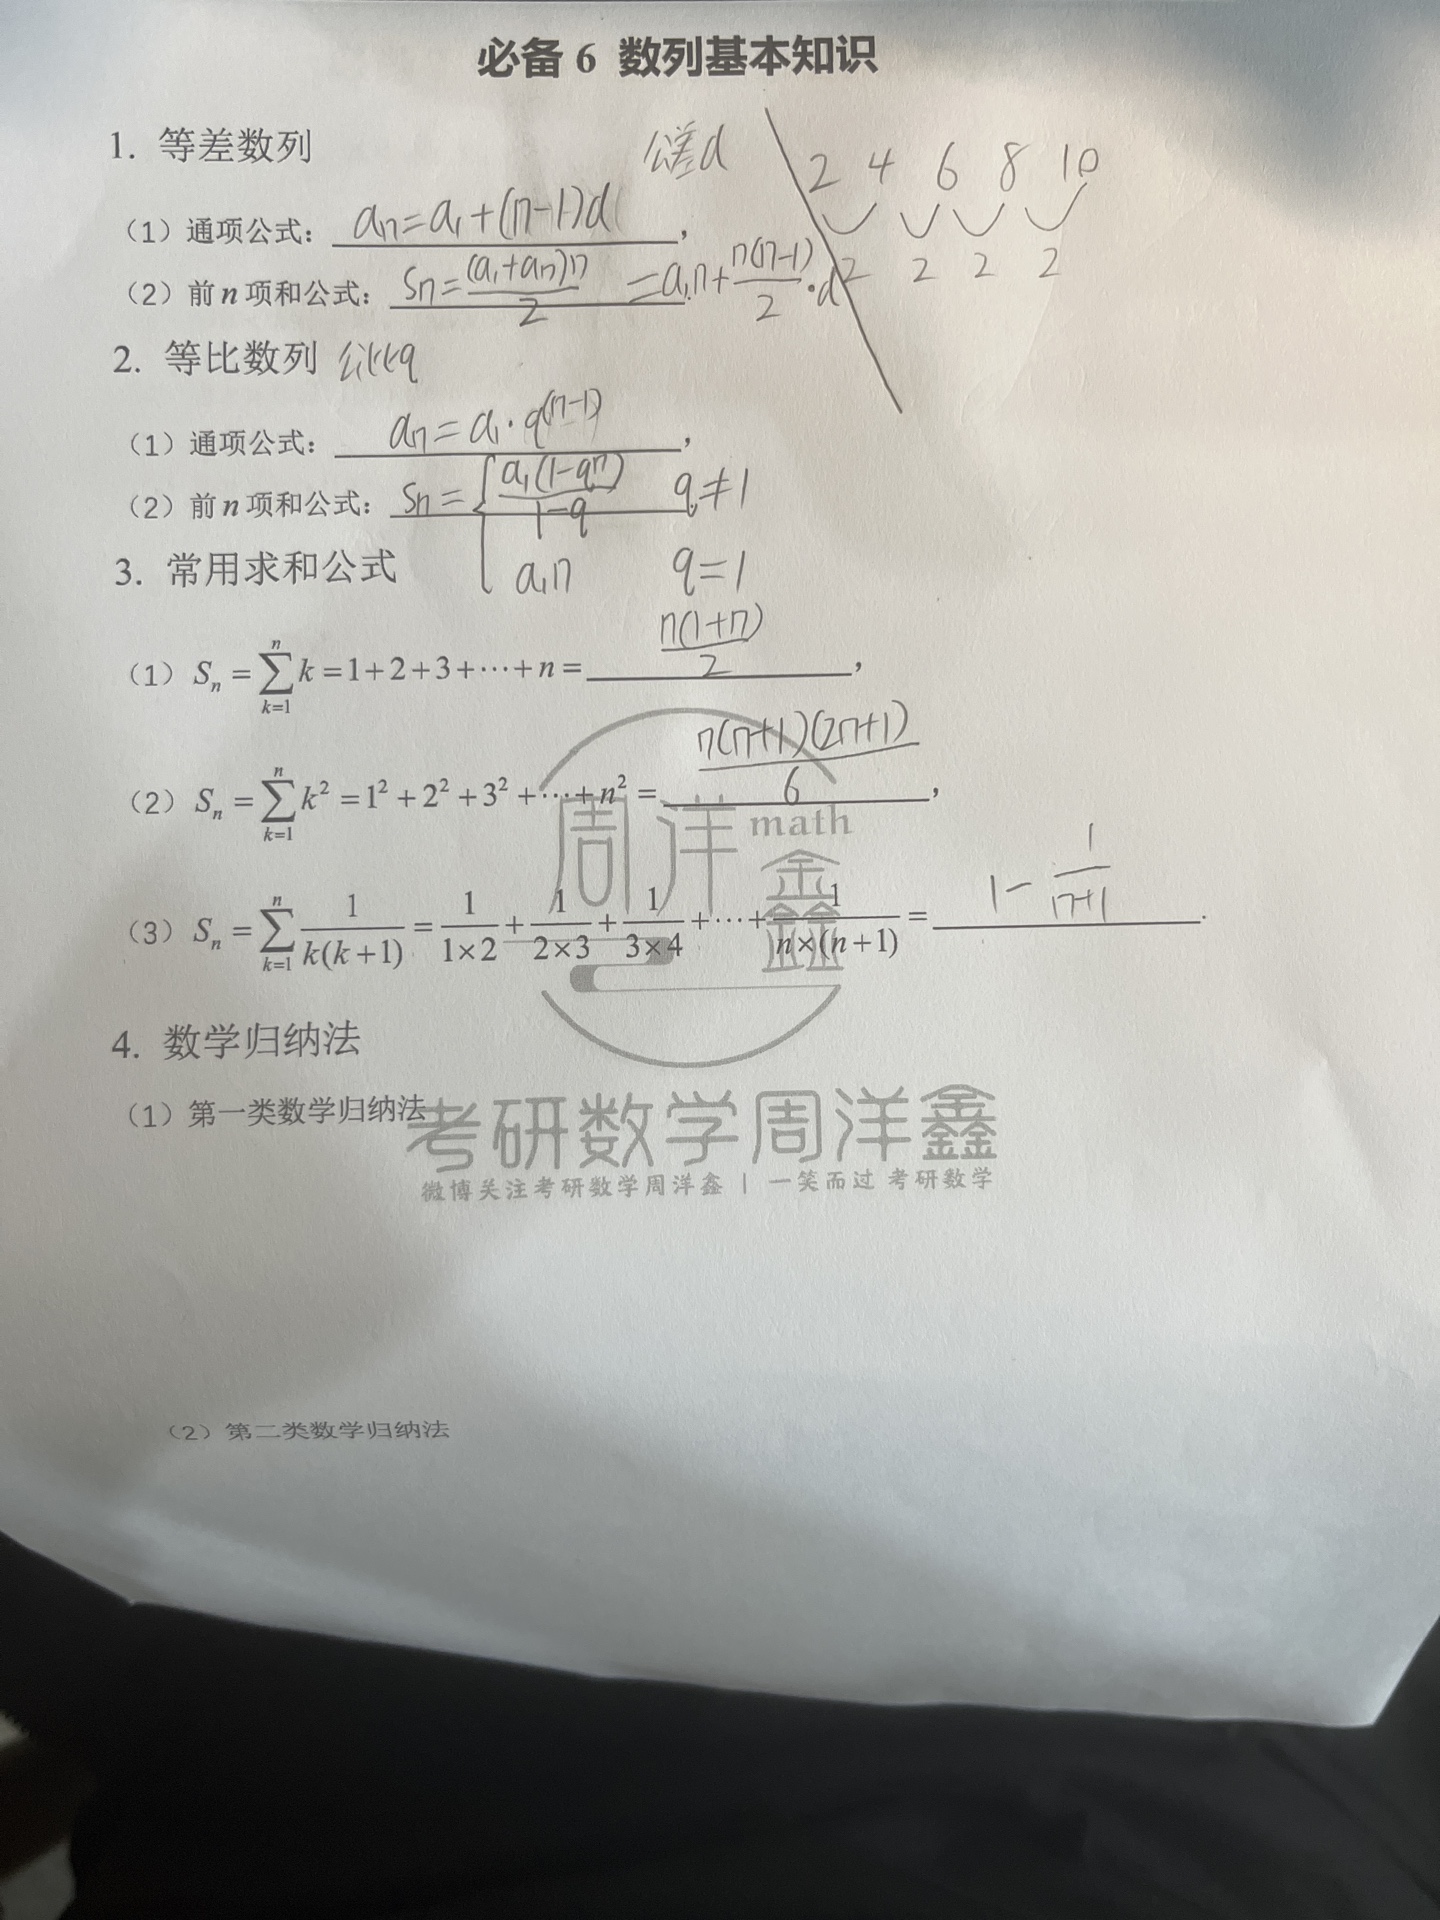 必备 6 数列基本知识
1. 等差数列 公差d
2 4 6 8 10
2 2 2 2
（1）通项公式：an=a₁+(n-1)d，
（2）前 n 项和公式：Sn=(a₁+an)n/2 =a₁n+n(n-1)/2·d.
2. 等比数列 公比q
（1）通项公式：an=a₁·q^(n-1)，
（2）前 n 项和公式：Sn={a₁(1-qⁿ)/1-q q≠1
a₁n q=1
3. 常用求和公式
（1）Sₙ=∑ₖ₌₁ⁿ k=1+2+3+⋯+n=n(1+n)/2，
（2）Sₙ=∑ₖ₌₁ⁿ k²=1²+2²+3²+⋯+n²=n(n+1)(2n+1)/6，
（3）Sₙ=∑ₖ₌₁ⁿ 1/k(k+1)=1/1×2+1/2×3+1/3×4+⋯+1/n×(n+1)=1-1/n+1.
周洋鑫 math
4. 数学归纳法
（1）第一类数学归纳法
考研数学周洋鑫
微博关注考研数学周洋鑫 | 一笑而过 考研数学
（2）第二类数学归纳法